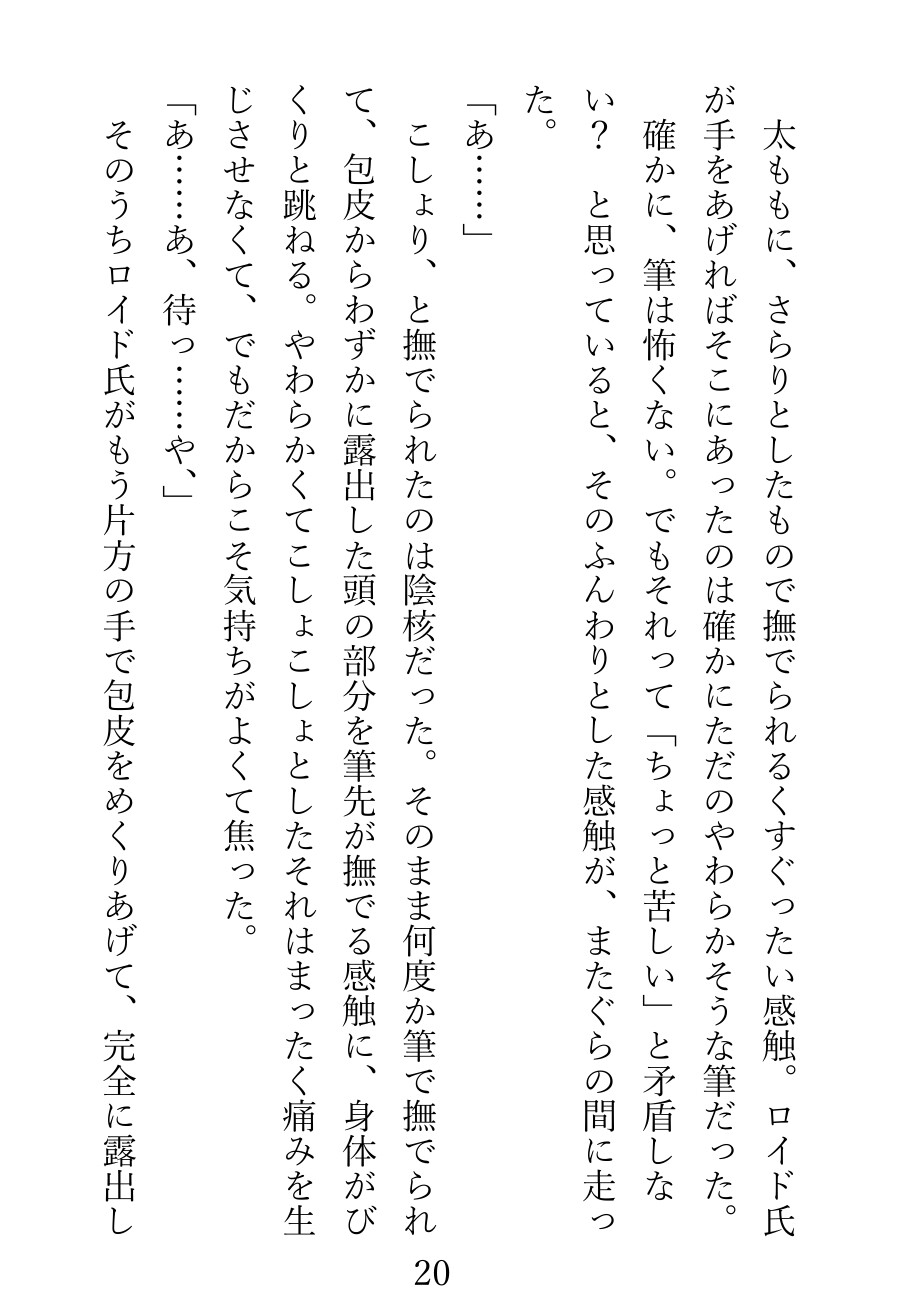 太ももに、さらりとしたもので撫でられるくすぐったい感触。ロイド氏
が手をあげればそこにあったのは確かにただのやわらかそうな筆だった。
確かに、筆は怖くない。でもそれって「ちょっと苦しい」と矛盾しな
い？　と思っていると、そのふんわりとした感触が、またぐらの間に走っ
た。
「あ……」
こしょり、と撫でられたのは陰核だった。そのまま何度か筆で撫でられ
て、包皮からわずかに露出した頭の部分を筆先が撫でる感触に、身体がび
くりと跳ねる。やわらかくてこしょこしょとしたそれはまったく痛みを生
じさせなくて、でもだからこそ気持ちがよくて焦った。
「あ……あ、待っ……や、」
そのうちロイド氏がもう片方の手で包皮をめくりあげて、完全に露出し
20